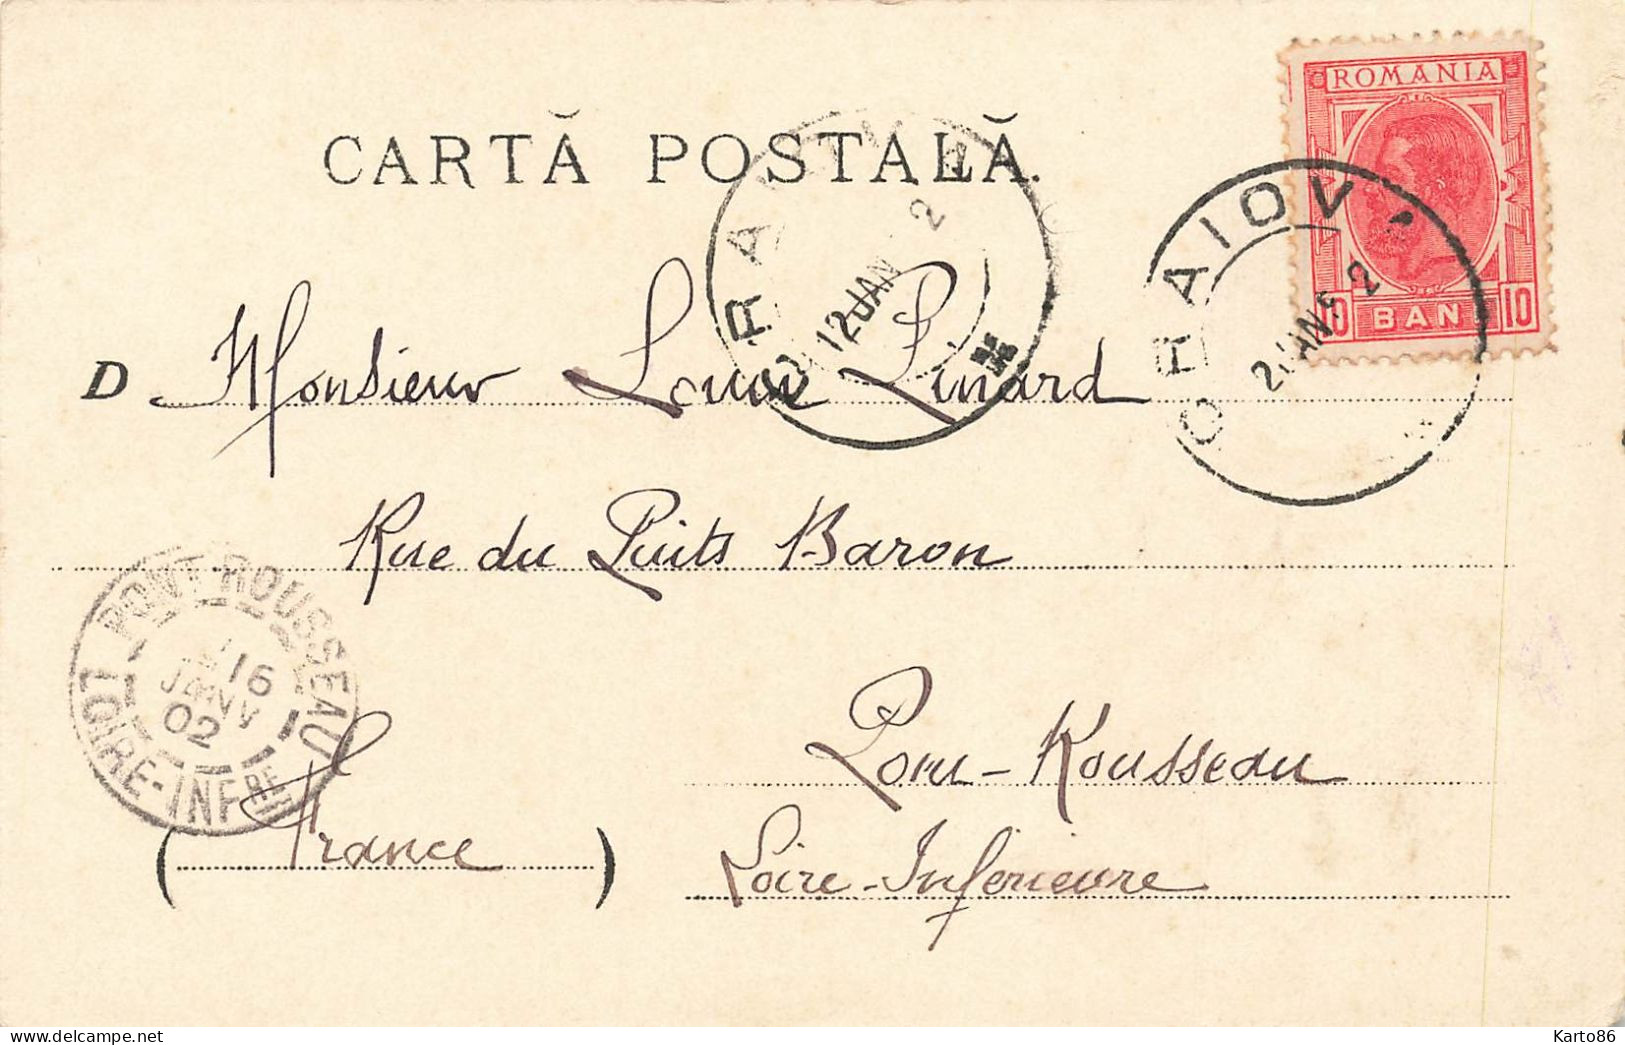 CARTĂ POSTALĂ.
ROMANIA
10 BAN 10
CRAIOV
12 JAN 2
JAN 2
D Monsieur Louis Linard
Rue du Puits Baron
PONT-ROUSSEAU
16
JANV
02
LOIRE-INFRE
Pont-Rousseau
(France)
Loire-Inferieure
Karto86